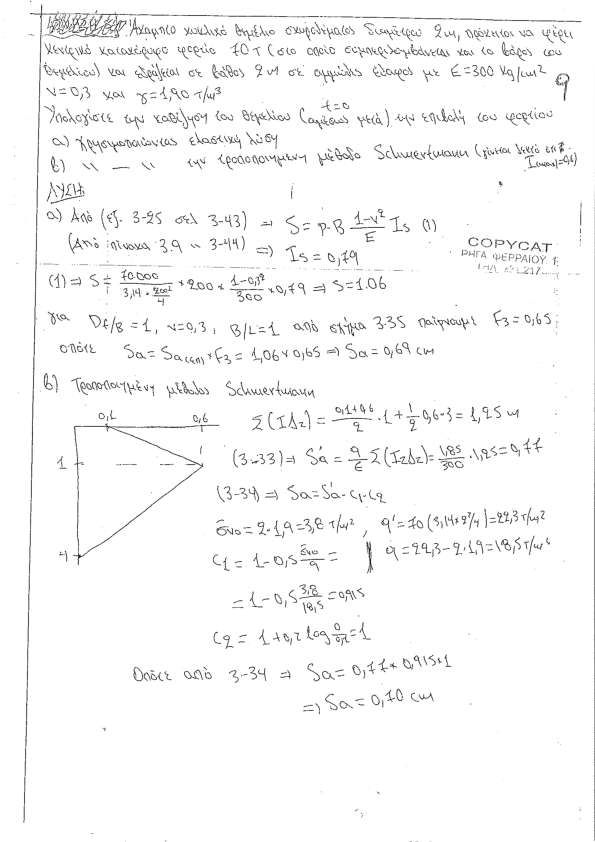 Άκαμπτο κυκλικό θεμέλιο σκυροδέματος διαμέτρου 2m, πρόκειται να φέρει
κεντρικό κατακόρυφο φορτίο 70T (στο οποίο συμπεριλαμβάνεται και το βάρος του
θεμελίου) και εδράζεται σε βάθος 2m σε αμμώδες έδαφος με E=300 kg/cm²
ν=0,3 και γ=1,90 T/m³
9
Υπολογίστε την καθίζηση του θεμελίου (αμέσως μετά) την επιβολή του φορτίου
t=0
α) Χρησιμοποιώντας ελαστική λύση
β) 〃 — 〃 την τροποποιημένη μέθοδο Schmertmann (γίνεται δεκτό οτι
Iz(max)=0,6)
ΛΥΣΗ:
α) Από (εξ. 3-25 σελ 3-43) ⇒ S = p·B (1-ν²)/E Is (1)
(Από πίνακα 3.9 〃 3-44) ⇒ Is = 0,79
COPYCAT
ΡΗΓΑ ΦΕΡΡΑΙΟΥ 1
(1) ⇒ S = 70.000/(3,14 * 200²/4) * 200 * (1-0,3²)/300 * 0,79 ⇒ S=1.06
για Df/B = 1, ν=0,3, B/L=1 από σχήμα 3.35 παίρνουμε F3=0,65
οπότε Sa = Sa(επ) * F3 = 1,06 * 0,65 ⇒ Sa = 0,69 cm
β) Τροποποιημένη μέθοδος Schmertmann
0,1 0,6
1
4
Σ(IΔz) = (0,1+0,6)/2 · 1 + 1/2 0,6·3 = 1,25 m
(3-33) ⇒ Sa' = q/E Σ(IzΔz) = 1,85/300 · 1,25 = 0,77
(3-34) ⇒ Sa = Sa'·C1·C2
σ̄vo = 2·1,9 = 3,8 T/m², q' = 70(3,14*2²/4) = 22,3 T/m²
C1 = 1-0,5 σ̄vo/q = q = 22,3-2·1,9 = 18,5 T/m²
= 1-0,5 3,8/18,5 = 0,915
C2 = 1+0,2 log 0/0,1 = 1
Οπότε από 3-34 ⇒ Sa = 0,77 * 0,915*1
⇒ Sa = 0,70 cm